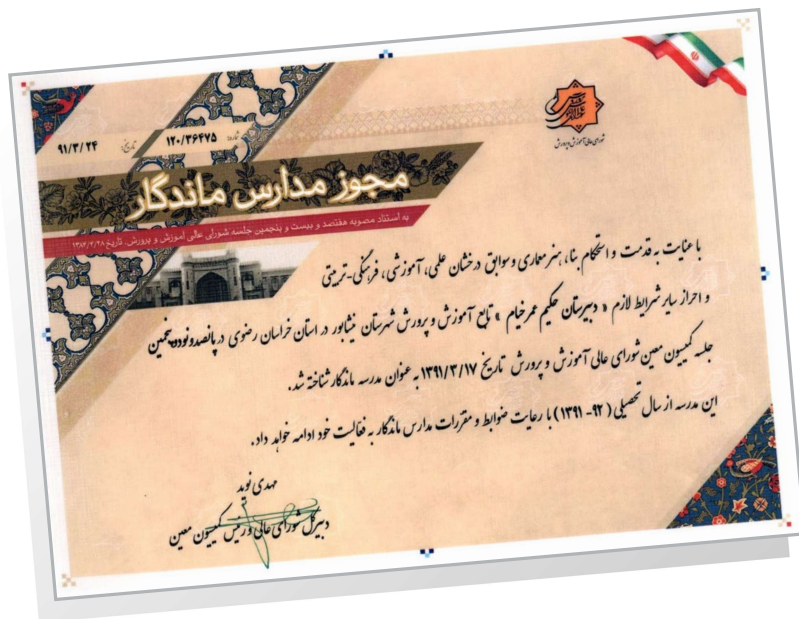 شورای عالی آموزش و پرورش
شماره: ۱۲۰/۳۶۴۷۵
تاریخ: ۹۱/۳/۲۴
مجوز مدارس ماندگار
به استناد مصوبه هفتصد و بیست و پنجمین جلسه شورای عالی آموزش و پرورش، تاریخ ۱۳۸۴/۴/۲۸
با عنایت به قدمت و استحکام بنا، هنر معماری و سوابق درخشان علمی، آموزشی، فرهنگی-تربیتی
و احراز سایر شرایط لازم « دبیرستان حکیم عمر خیام » تابع آموزش و پرورش شهرستان نیشابور در استان خراسان رضوی در پانصد و نود و پنجمین
جلسه کمیسیون معین شورای عالی آموزش و پرورش تاریخ ۱۳۹۱/۳/۱۷ به عنوان مدرسه ماندگار شناخته شد.
این مدرسه از سال تحصیلی (۹۲-۱۳۹۱) با رعایت ضوابط و مقررات مدارس ماندگار به فعالیت خود ادامه خواهد داد.
مهدی نوید
دبیرکل شورای عالی و رئیس کمیسیون معین